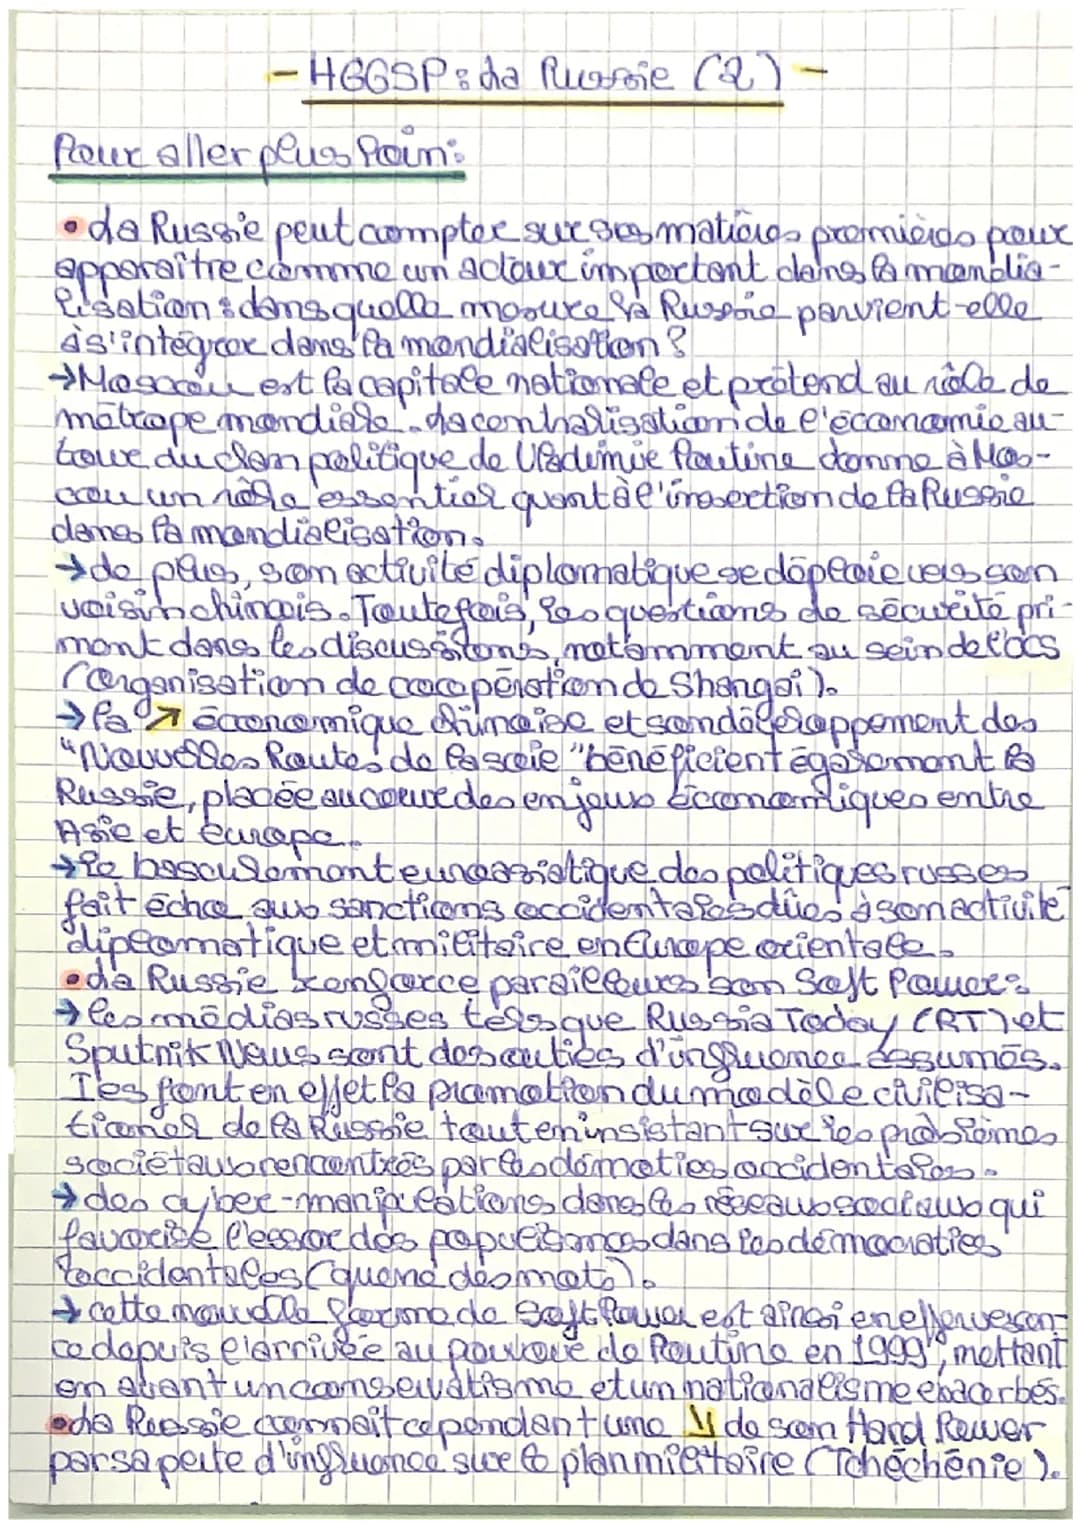 - HGGSP : La Russie (2) -
Pour aller plus loin :
• La Russie peut compter sur ses matières premières pour
apparaître comme un acteur important dans la mondia-
lisation : dans quelle mesure la Russie parvient-elle
à s'intégrer dans la mondialisation ?
→ Moscou est la capitale nationale et prétend au rôle de
métrope mondiale. La centralisation de l'économie au-
tour du clan politique de Vladimir Poutine donne à Mos-
cou un rôle essentiel quant à l'insertion de la Russie
dans la mondialisation.
→ de plus, son activité diplomatique se déploie vers son
voisin chinois. Toutefois, les questions de sécurité pri-
ment dans les discussions, notamment au sein de l'OCS
(Organisation de coopération de Shangai).
→ la ↗ économique chinoise et son développement des
"Nouvelles Routes de la soie" bénéficient également la
Russie, placée au coeur des enjeux économiques entre
Asie et Europe.
→ le basculement euroasiatique des politiques russes
fait écho aux sanctions occidentales dûes à son activité
diplomatique et militaire en Europe orientale.
• La Russie renforce par ailleurs son Soft Power :
→ les médias russes tels que Russia Today (RT) et
Sputnik News sont des outils d'influence assumés.
Ils font en effet la promotion du modèle civilisa-
tionnel de la Russie tout en insistant sur les problèmes
sociétaux rencontrés par les démocraties occidentales.
→ des cyber-manipulations dans les réseaux sociaux qui
favorise l'essor des populismes dans les démocraties
occidentales (guerre des mots).
→ cette nouvelle forme de Soft Power est ainsi en effervescen-
ce depuis l'arrivée au pouvoir de Poutine en 1999, mettant
en avant un conservatisme et un nationalisme exacerbés.
• La Russie connaît cependant une ↘ de son Hard Power
par sa perte d'influence sur le plan militaire (Tchéchénie).